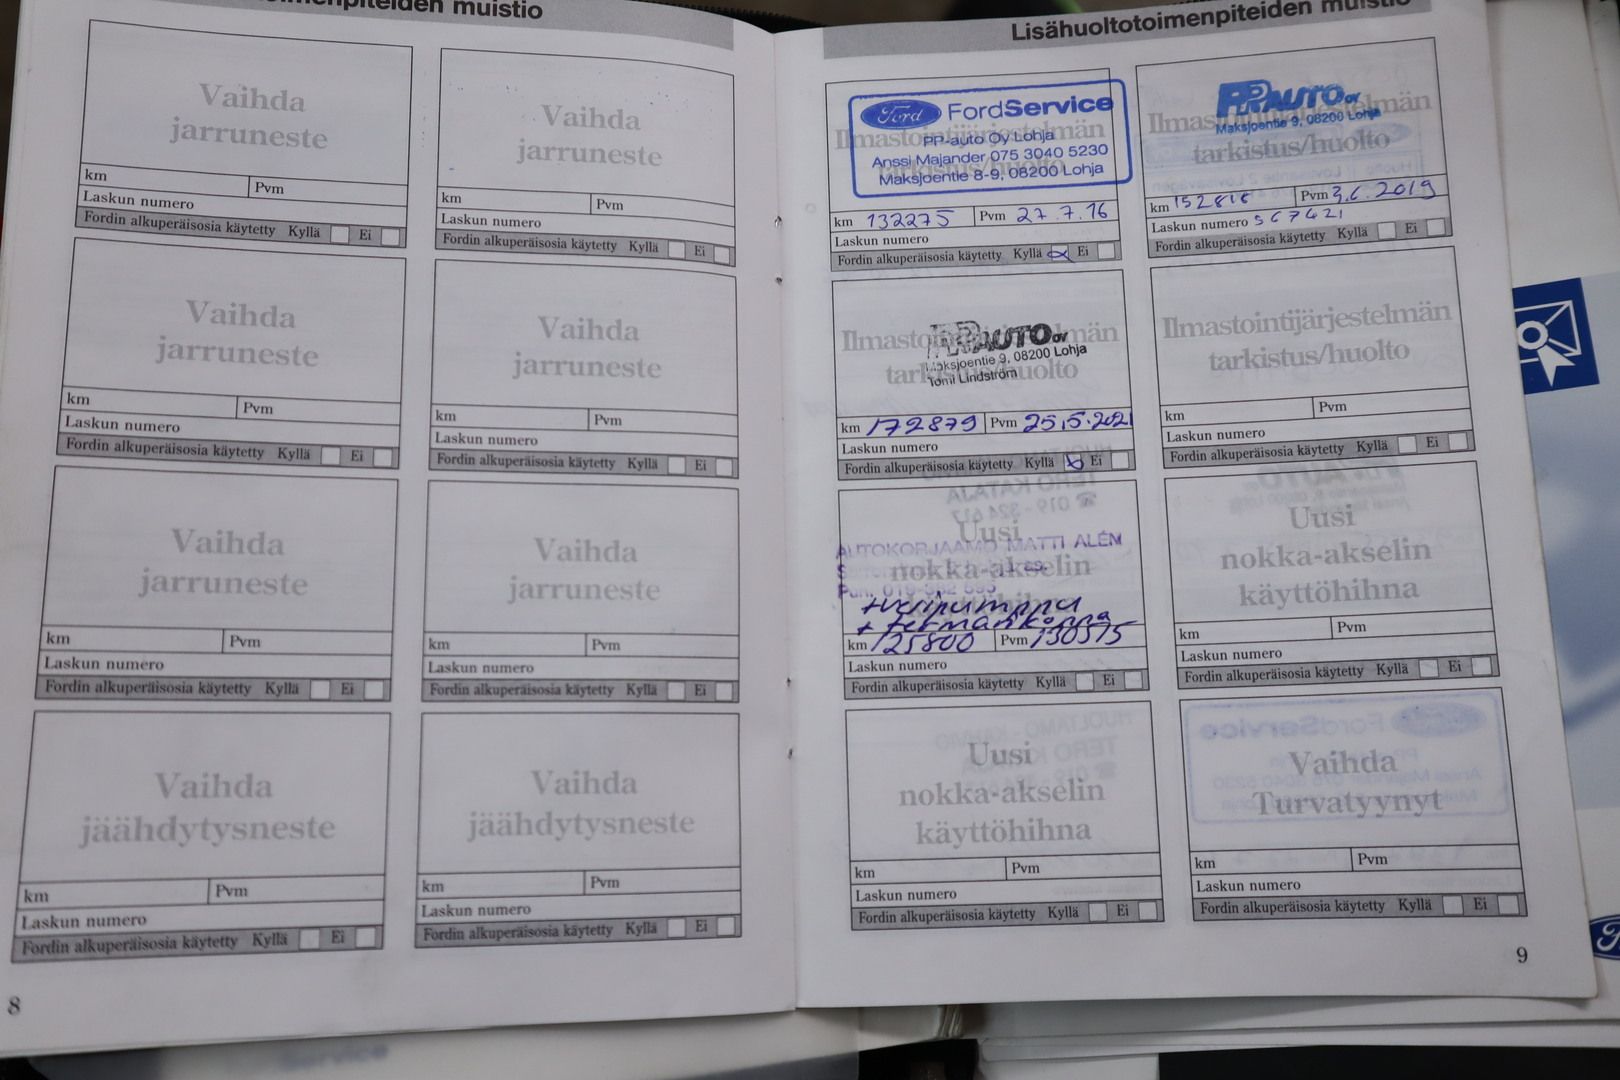 toimenpiteiden muistio
Vaihda
jarruneste
km
Pvm
Laskun numero
Fordin alkuperäisosia käytetty Kyllä Ei
Vaihda
jarruneste
km
Pvm
Laskun numero
Fordin alkuperäisosia käytetty Kyllä Ei
Vaihda
jarruneste
km
Pvm
Laskun numero
Fordin alkuperäisosia käytetty Kyllä Ei
Vaihda
jarruneste
km
Pvm
Laskun numero
Fordin alkuperäisosia käytetty Kyllä Ei
Vaihda
jarruneste
km
Pvm
Laskun numero
Fordin alkuperäisosia käytetty Kyllä Ei
Vaihda
jarruneste
km
Pvm
Laskun numero
Fordin alkuperäisosia käytetty Kyllä Ei
Vaihda
jäähdytysneste
km
Pvm
Laskun numero
Fordin alkuperäisosia käytetty Kyllä Ei
Vaihda
jäähdytysneste
km
Pvm
Laskun numero
Fordin alkuperäisosia käytetty Kyllä Ei
8
Lisähuoltotoimenpiteiden muistio
Ilmastointijärjestelmän
tarkistus/huolto
Ford FordService
PP-auto Oy Lohja
Anssi Majander 075 3040 5230
Maksjoentie 8-9, 08200 Lohja
km 132275 Pvm 27.7.16
Laskun numero
Fordin alkuperäisosia käytetty Kyllä Ei
Ilmastointijärjestelmän
tarkistus/huolto
PP AUTO OY
Maksjoentie 9, 08200 Lohja
km 152818 Pvm 3.6.2019
Laskun numero 567421
Fordin alkuperäisosia käytetty Kyllä Ei
Ilmastointijärjestelmän
tarkistus/huolto
PP AUTO OY
Maksjoentie 9, 08200 Lohja
Tomi Lindström
km 172879 Pvm 25.5.2021
Laskun numero
Fordin alkuperäisosia käytetty Kyllä Ei
Ilmastointijärjestelmän
tarkistus/huolto
km
Pvm
Laskun numero
Fordin alkuperäisosia käytetty Kyllä Ei
Uusi
nokka-akselin
käyttöhihna
AUTOKORJAAMO MATTI ALÉN
+vesipumppu
+ termarikoppa
km 125800 Pvm 130515
Laskun numero
Fordin alkuperäisosia käytetty Kyllä Ei
Uusi
nokka-akselin
käyttöhihna
km
Pvm
Laskun numero
Fordin alkuperäisosia käytetty Kyllä Ei
Uusi
nokka-akselin
käyttöhihna
km
Pvm
Laskun numero
Fordin alkuperäisosia käytetty Kyllä Ei
Vaihda
Turvatyynyt
km
Pvm
Laskun numero
Fordin alkuperäisosia käytetty Kyllä Ei
9